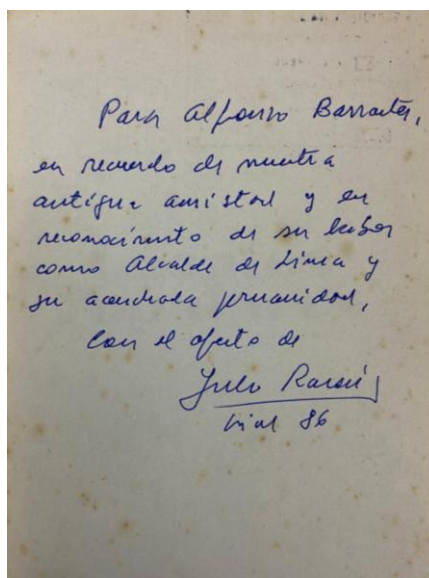 Para Alfonso Barrantes,
en recuerdo de nuestra
antigua amistad y en
reconocimiento de su labor
como Alcalde de Lima y
su acendrada peruanidad,
Con el afecto de
Julio Ramón
86